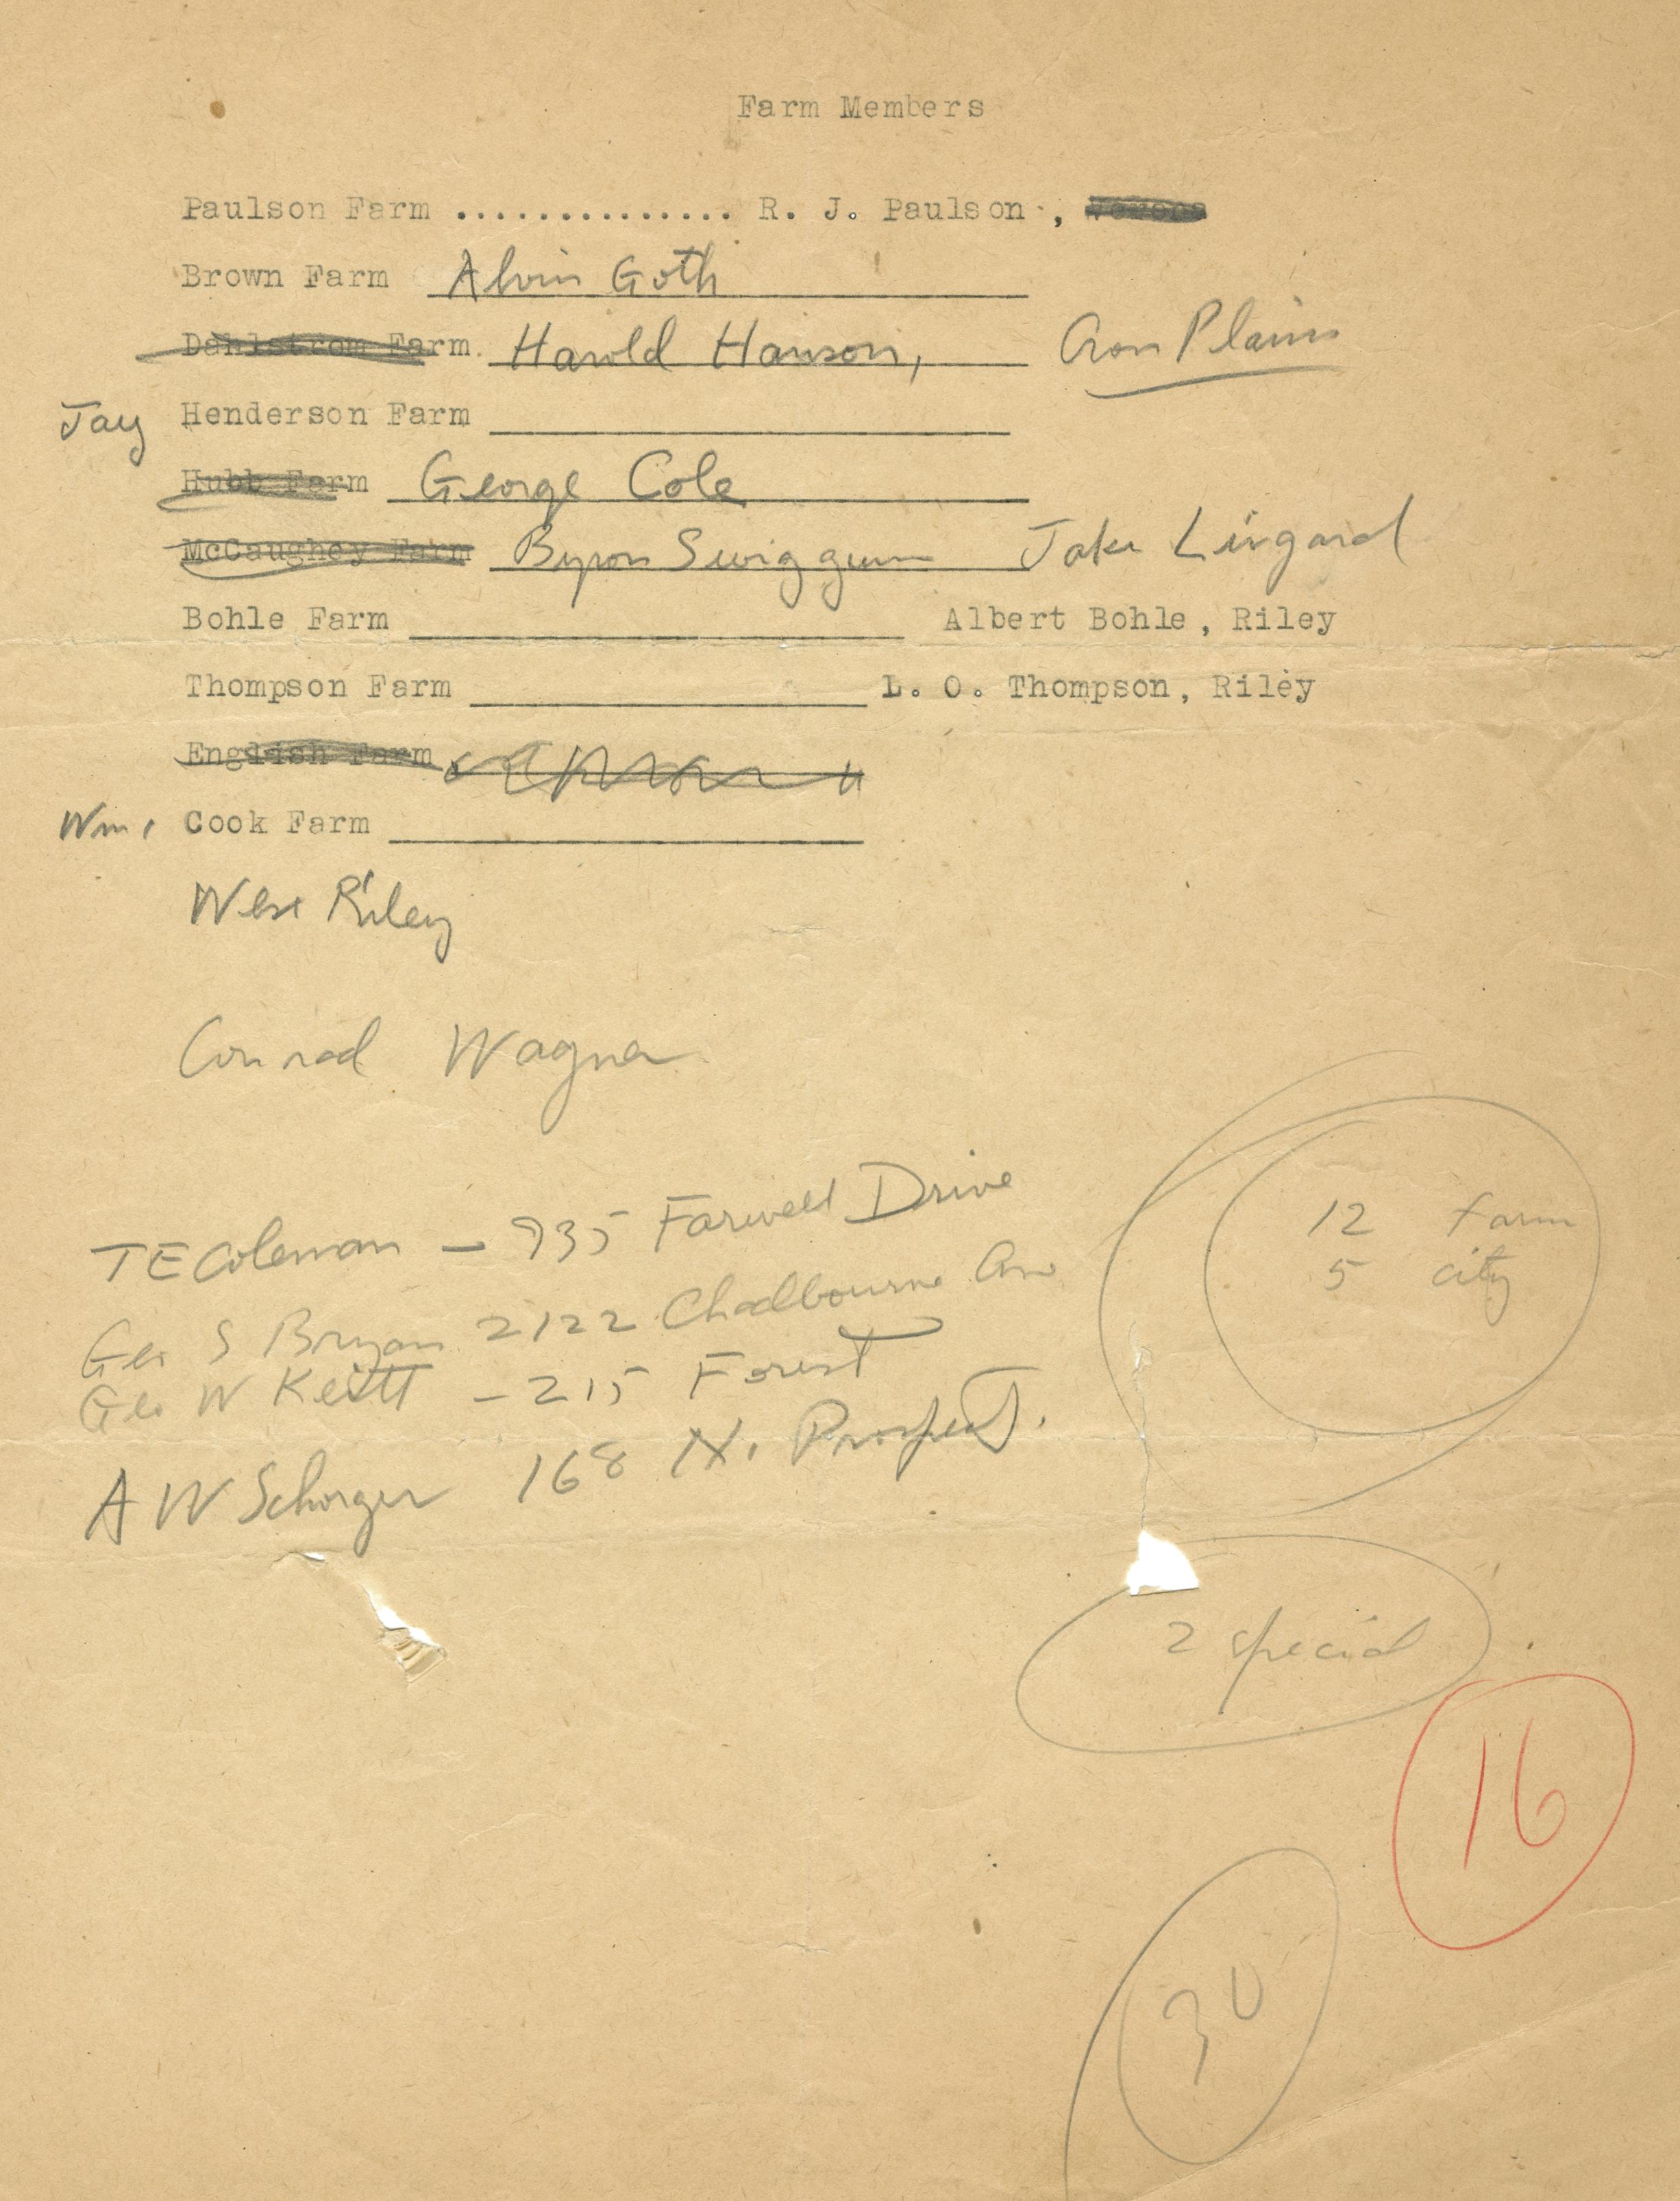 Farm Members
Paulson Farm .............. R. J. Paulson ,
Brown Farm Alvin Goth
Dahlstrom Farm Harold Hanson, Cross Plains
Jay Henderson Farm
Hubb Farm George Cole
McCaughey Farm Byron Swiggum Jake Lingard
Bohle Farm Albert Bohle, Riley
Thompson Farm L. O. Thompson, Riley
English Farm
Wm. Cook Farm
West Riley
Conrad Wagner
T E Coleman — 735 Farwell Drive
Geo S Bryan 2122 Chadbourne Ave
Geo W Keitt — 215 Forest
A W Schorger 168 N. Prospect.
12 farm
5 city
2 special
16
30